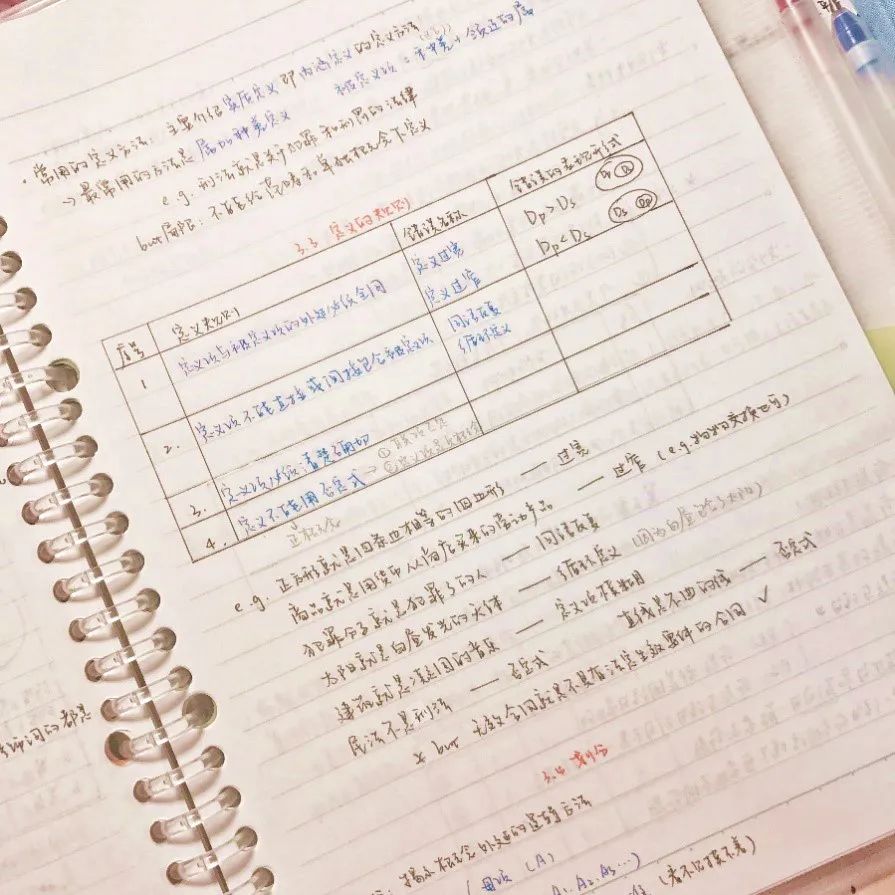 ·常用的定义方法:主要介绍实质定义即内涵定义的定义方法
→最常用的方法是属加种差定义 被定义项=种差+邻近的属
e.g. 刑法就是关于犯罪和刑罚的法律
but局限:不能给范畴和单独概念下定义
3.3 定义的规则
序号 定义规则 错误名称 错误的表现形式
1 定义项与被定义项的外延必须全同 定义过宽 Dp>Ds
定义过窄 Dp<Ds Ds Dp
2. 定义项不能直接或间接包含被定义项 同语反复
循环定义
3. 定义项必须清楚确切
4. 定义不能用否定式
正概念
e.g. 正方形就是四条边相等的四边形 — 过宽
商品就是用货币从商店买来的劳动产品 — 过窄(e.g.物物交换也可)
犯罪分子就是犯罪了的人 — 同语反复
太阳就是白昼发光的天体 — 循环定义
建筑就是凝固的音乐 — 定义项模糊 直线是不曲的线 — 否定式
民法不是刑法 — 否定式
* but 无效合同就是不具有法定生效要件的合同 ✓
3.4 划分
揭示概念外延的逻辑方法
母项(A)
A₁.A₂.A₃...)